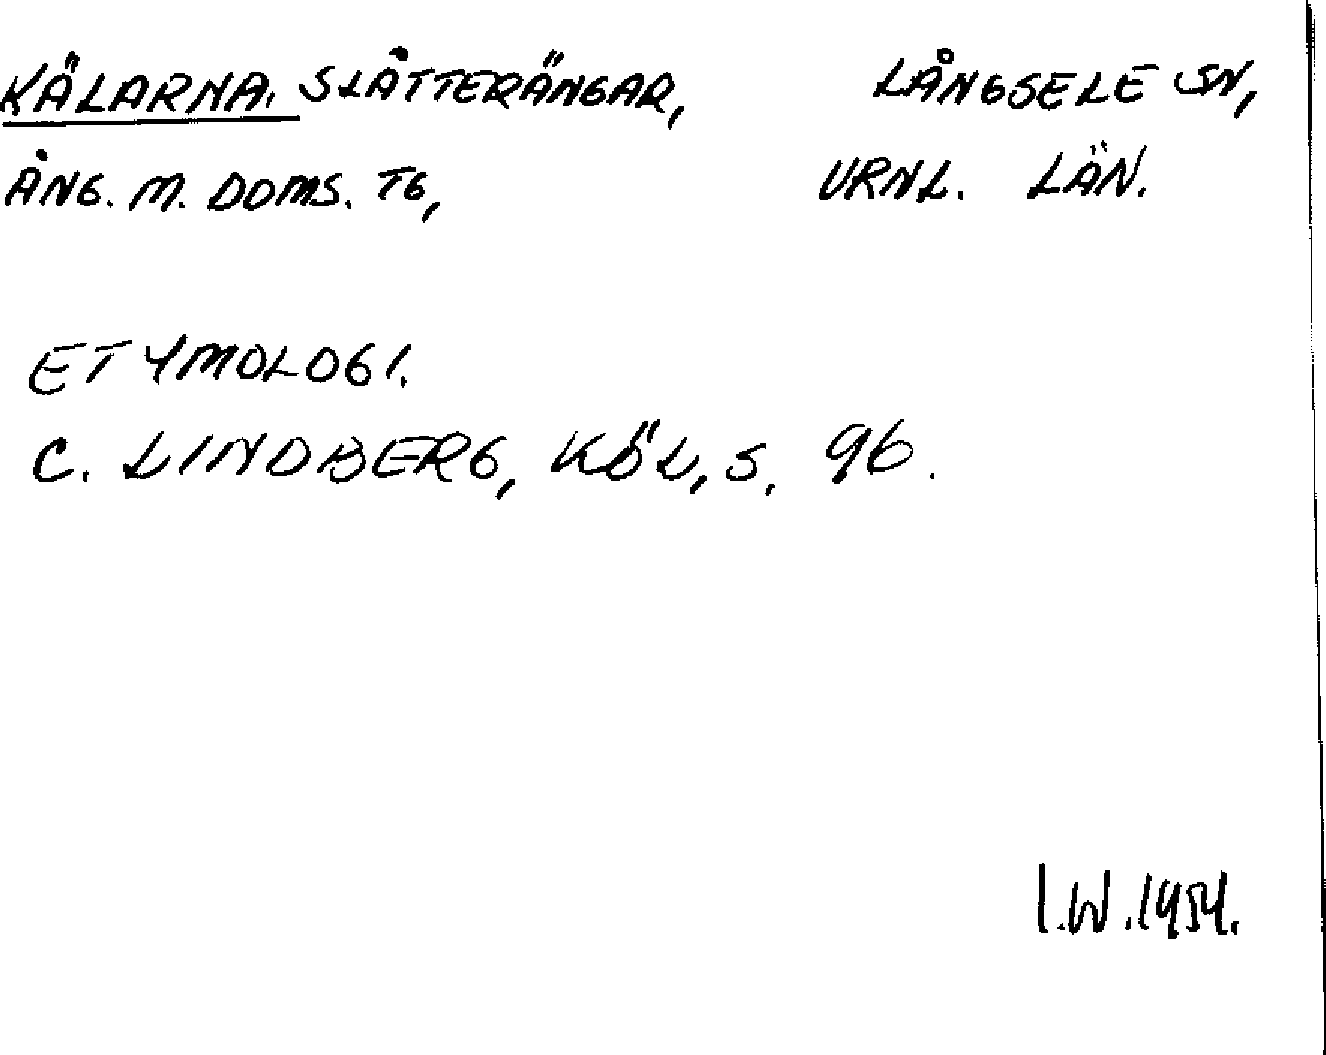 KÄLARNA. SLÅTTERÄNGAR, LÅNGSELE SN,
ÅNG. M. DOMS. TG, VRNL. LÄN.
ETYMOLOGI.
C. LINDBERG, KÖL, S. 96.
I.W. 1954.